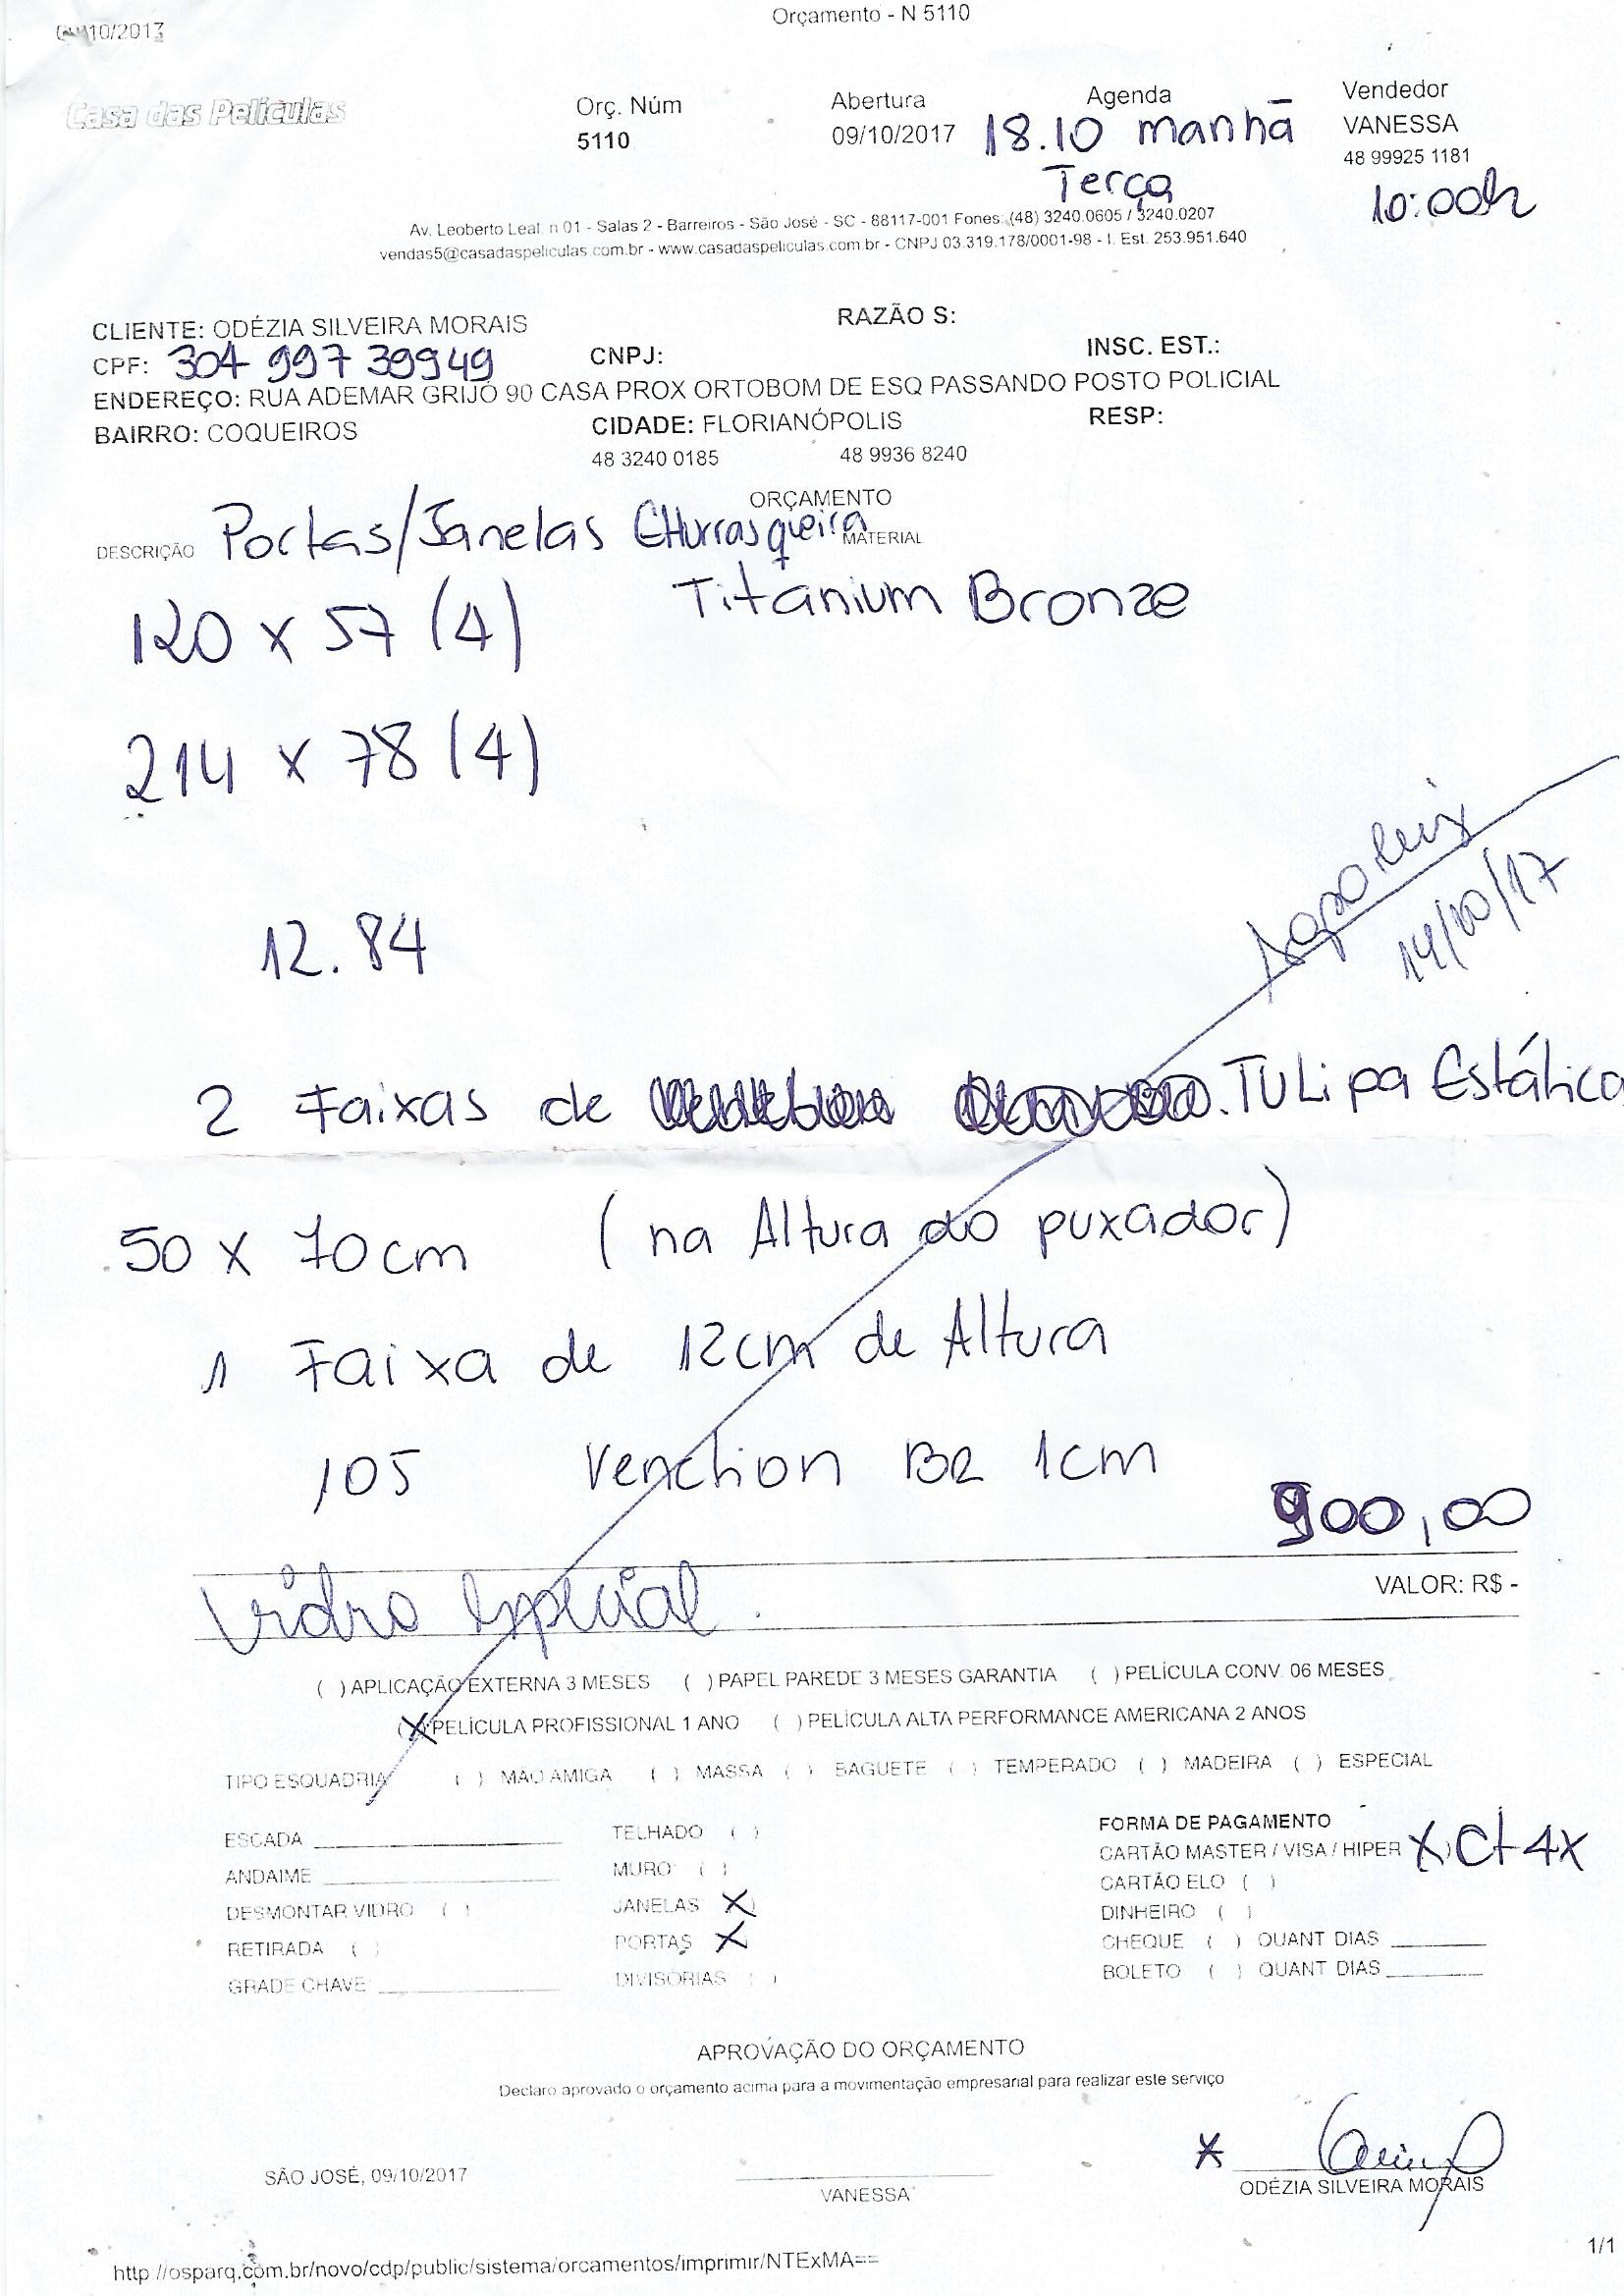 Orçamento - N 5110
10/2017
Casa das Películas
Orç. Núm
5110
Abertura
09/10/2017
Agenda
18.10 manhã
Terça
Vendedor
VANESSA
48 99925 1181
10:00h
Av. Leoberto Leal. n 01 - Salas 2 - Barreiros - São José - SC - 88117-001 Fones: (48) 3240.0605 / 3240.0207
vendas5@casadaspeliculas.com.br - www.casadaspeliculas.com.br - CNPJ 03.319.178/0001-98 - I. Est. 253.951.640
CLIENTE: ODÉZIA SILVEIRA MORAIS
RAZÃO S:
CPF: 304 997 39949
CNPJ:
INSC. EST.:
ENDEREÇO: RUA ADEMAR GRIJÓ 90 CASA PROX ORTOBOM DE ESQ PASSANDO POSTO POLICIAL
BAIRRO: COQUEIROS
CIDADE: FLORIANÓPOLIS
RESP:
48 3240 0185
48 9936 8240
ORÇAMENTO
DESCRIÇÃO Portas/Janelas CHurrasqueira
MATERIAL
120 x 57 (4)
Titanium Bronze
214 x 78 (4)
14/10/17
12.84
2 Faixas de
TULipa Estática
50 x 70cm (na Altura do puxador)
1 Faixa de 12cm de Altura
105 BR 1cm
900,00
VALOR: R$ -
Vidro especial.
( ) APLICAÇÃO EXTERNA 3 MESES ( ) PAPEL PAREDE 3 MESES GARANTIA ( ) PELÍCULA CONV. 06 MESES
(X) PELÍCULA PROFISSIONAL 1 ANO ( ) PELÍCULA ALTA PERFORMANCE AMERICANA 2 ANOS
TIPO ESQUADRIA ( ) MÃO AMIGA ( ) MASSA ( ) BAGUETE ( ) TEMPERADO ( ) MADEIRA ( ) ESPECIAL
ESCADA
ANDAIME
DESMONTAR VIDRO ( )
RETIRADA ( )
GRADE CHAVE
TELHADO ( )
MURO ( )
JANELAS X
PORTAS X
DIVISÓRIAS ( )
FORMA DE PAGAMENTO
CARTÃO MASTER / VISA / HIPER X) Ct 4x
CARTÃO ELO ( )
DINHEIRO ( )
CHEQUE ( ) QUANT DIAS
BOLETO ( ) QUANT DIAS
APROVAÇÃO DO ORÇAMENTO
Declaro aprovado o orçamento acima para a movimentação empresarial para realizar este serviço
SÃO JOSÉ, 09/10/2017
VANESSA
ODÉZIA SILVEIRA MORAIS
http://osparq.com.br/novo/cdp/public/sistema/orcamentos/imprimir/NTExMA==
1/1